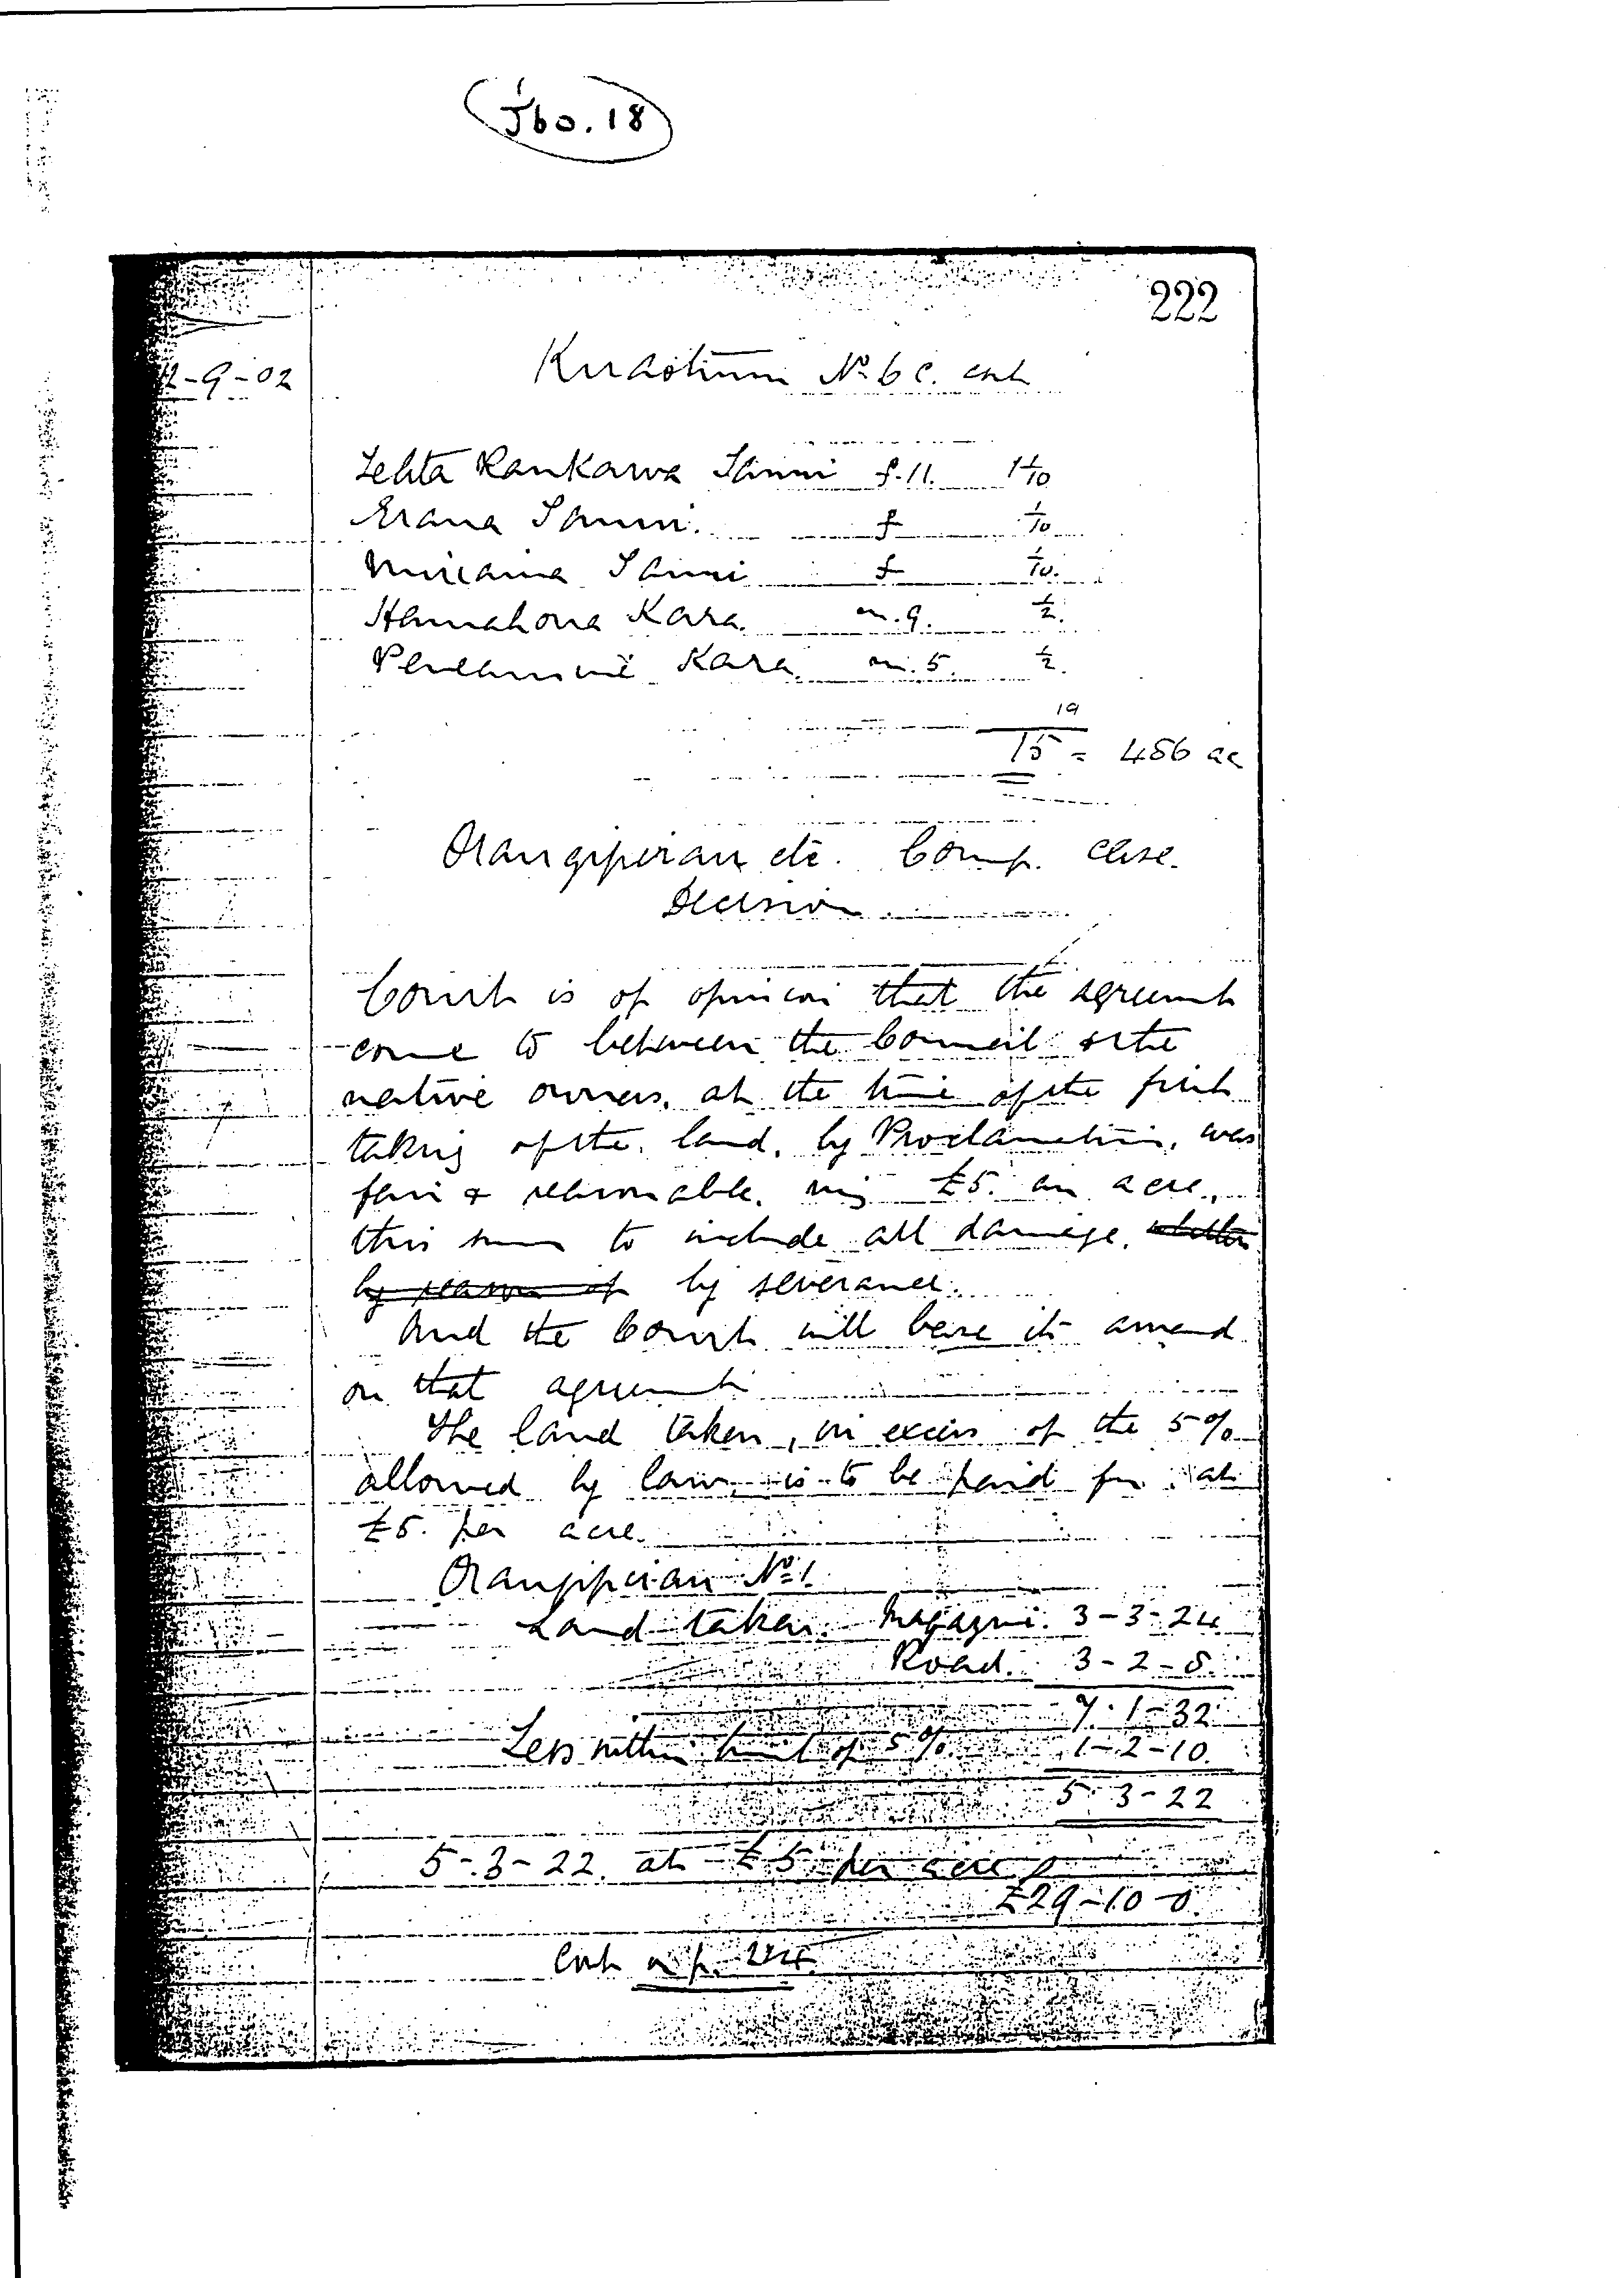 J60.18
222
12-9-02
No 6 C. cont
Rankawa f.11. 1 1/10
Erana f 1/10
f 1/10.
Kara. m.9. 1/2.
Kara m.5. 1/2.
19
15 = 456 ac
Orangipirau etc. Comp. Case.
Decision
Court is of opinion that the agreement
come to between the Council & the
native owners, at the time of the first
taking of the land, by Proclamation, was
fair & reasonable. viz £5. an acre,
this sum to include all damage, whether
by reason of by severance.
And the Court will base its award
on that agreement
The land taken, in excess of the 5%
allowed by law, is to be paid for at
£5. per acre.
Orangipirau No 1.
Land taken. Magazine. 3-3-24
Road. 3-2-8.
7-1-32
Less within limit of 5% 1-2-10.
5-3-22
5-3-22. at £5 per acre
£29-10-0.
Cont on p. 224